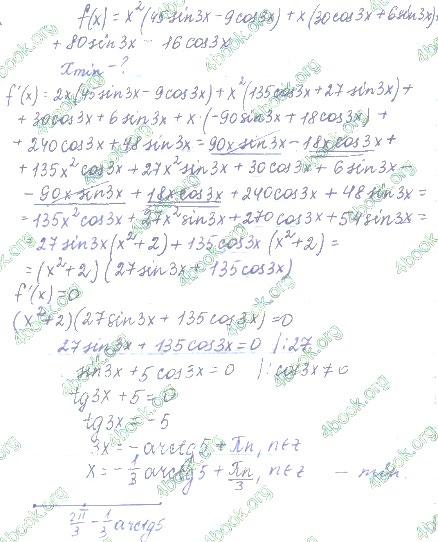 f(x) = x²(45sin3x - 9cos3x) + x(30cos3x + 6sin3x) +
+ 80sin3x - 16cos3x
xmin - ?
f'(x) = 2x(45sin3x - 9cos3x) + x²(135cos3x + 27sin3x) +
+ 30cos3x + 6sin3x + x·(-90sin3x + 18cos3x) +
+ 240cos3x + 48sin3x = 90xsin3x - 18xcos3x +
+ 135x²cos3x + 27x²sin3x + 30cos3x + 6sin3x -
- 90xsin3x + 18xcos3x + 240cos3x + 48sin3x =
= 135x²cos3x + 27x²sin3x + 270cos3x + 54sin3x =
= 27sin3x(x²+2) + 135cos3x(x²+2) =
= (x²+2)(27sin3x + 135cos3x)
f'(x) = 0
(x²+2)(27sin3x + 135cos3x) = 0
27sin3x + 135cos3x = 0 |:27
sin3x + 5cos3x = 0 |:cos3x ≠ 0
tg3x + 5 = 0
tg3x = -5
3x = -arctg5 + πn, n∈z
x = -1/3 arctg5 + πn/3, n∈z - min.
2π/3 - 1/3 arctg5
4book.org